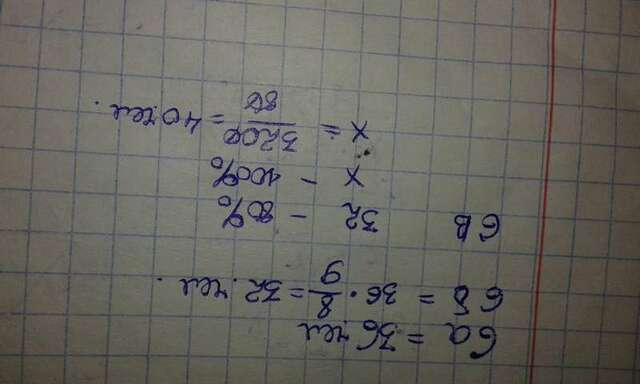 6а = 36 чел
6б = 36 · 8/9 = 32 чел.
6В 32 – 80%
х – 100%
х = 3200/80 = 40 чел.